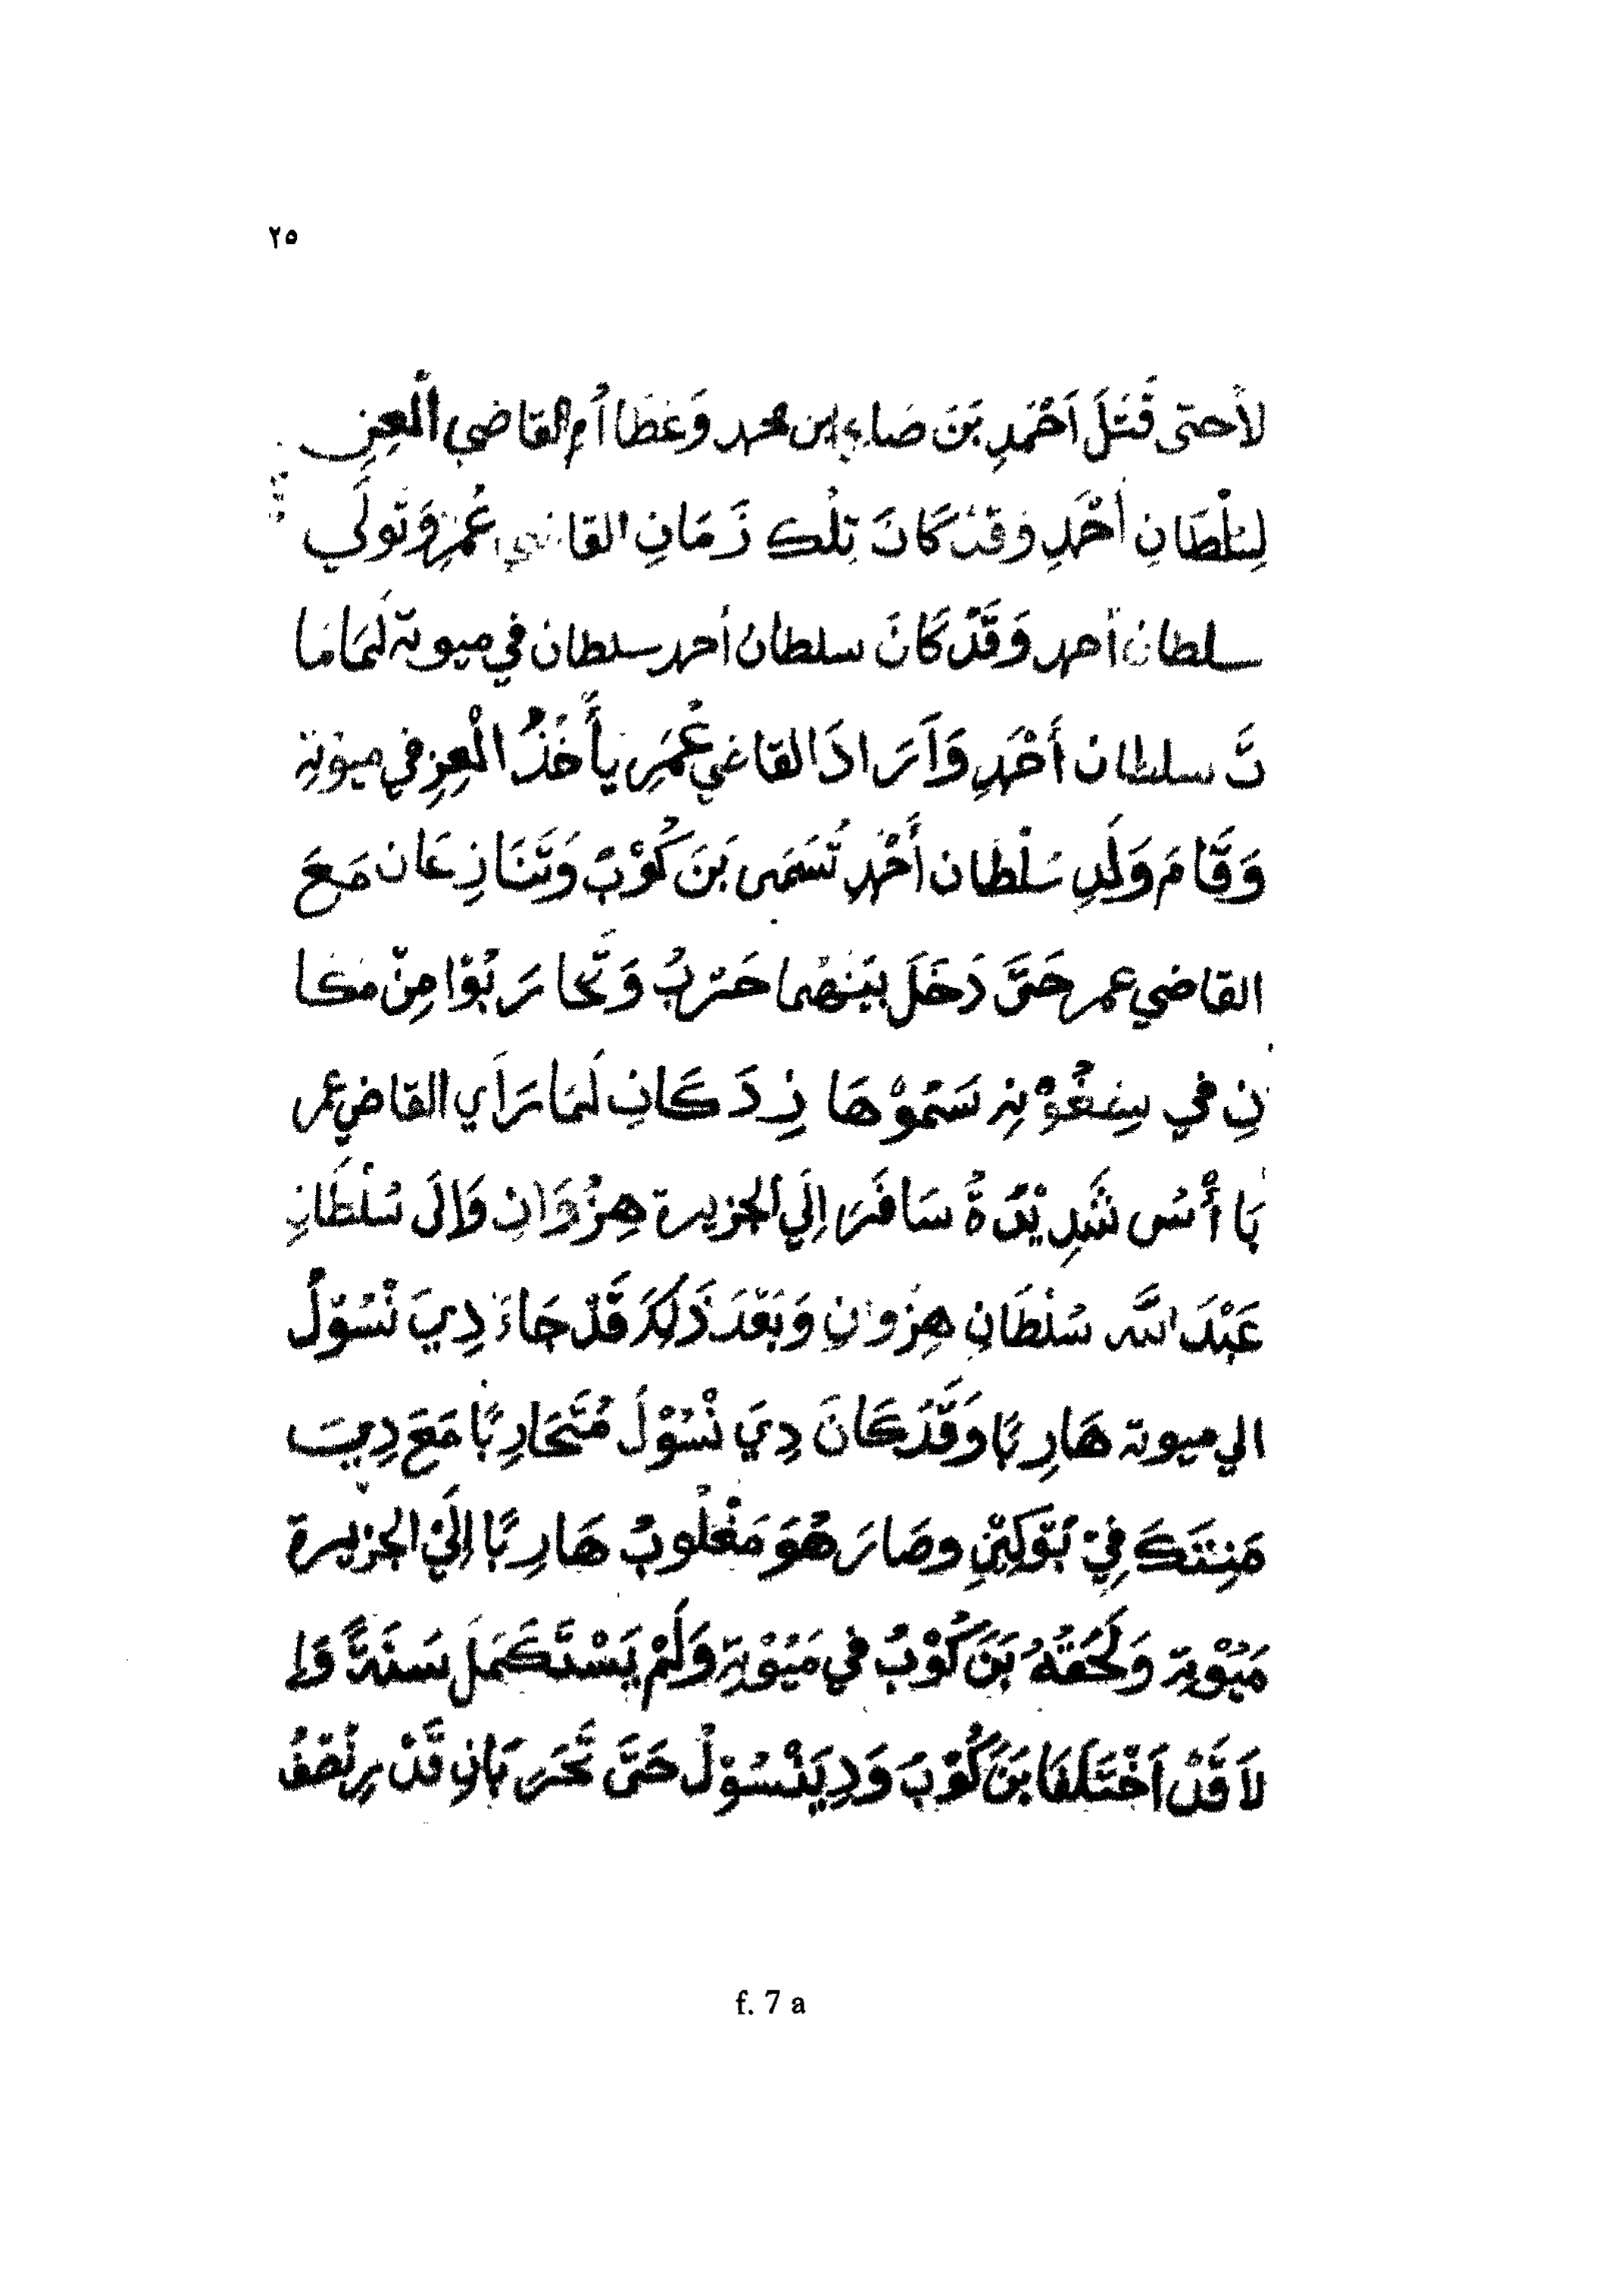 ٢٥
لأحتى قَتَلَ اَحْمَدِ بَنَ صَاءِ ابن محمد وَعَطَا أُم القاضي اْلعِزِ
لِسُلْطَانِ أحْمَدِ وَقَدْ كَانَ تِلْكَ زَمَانِ القاضي عُمَرِ وَتَوَلَّي
سلطان أحمد وَقَدْ كَانَ سلطان أحمد سلطان في ميوتة لَمَامَا
تَّ سلطان أَحْمَدِ وَاَرَادَ القاضي عُمَرِ يَأْخُذُ الْعِزِ في ميوْتِة
وَقَامَ وَلَدِ سُلْطَان أَحْمَدِ تُسَمَى بَنَ كُوْبُ وَتَنَازِعَان مَعَ
القاضي عمر حَتَّى دَخَلَ بَيْنَهُمَا حَرْبُ وَتَّحَارَبُوْا مِنْ مَكَا
نِ في سِنْغُوْنِ سَمُوْهَا نِدَكَانِ لَمَا رَاَي القاضي عمر
بَاأْسُ شَدِيْدَةُ سَافَرَ اِلَي الجزيرة هِنْزُوَانِ وَاِلَى سُلْطَانِ
عَبْدَ الله سُلْطَانِ هِنْزُوانِ وَبَعْدَ ذَلِكَ قَدْ جَاءَ دِيَ نْسُوْلُ
الي ميوتة هَارِبًا وَقَدْ كَانَ دِيَ نْسُوْلَ مُتَحَارِبًا مَعَ دِيَ
مَنِتَكَ فِيْ بُوَكِيْنِ وصَارَ هُوَ مَغْلُوبُ هَارِبًا اِلَيْ الجزيرة
مَيُوْتِة وَلَحَقَهُ بَنَ كُوْبُ في مَيُوْتِة وَلَمْ يَسْتَكْمَلَ سَنَةً وَاِ
لاَ قَدْ اَخْتَلَفَا بَنَ كُوْبَ وَدِيَنْسُوْلُ حَتَّى تَّحَرَبَانِ قَدْ رِنْصَفُ
f. 7 a